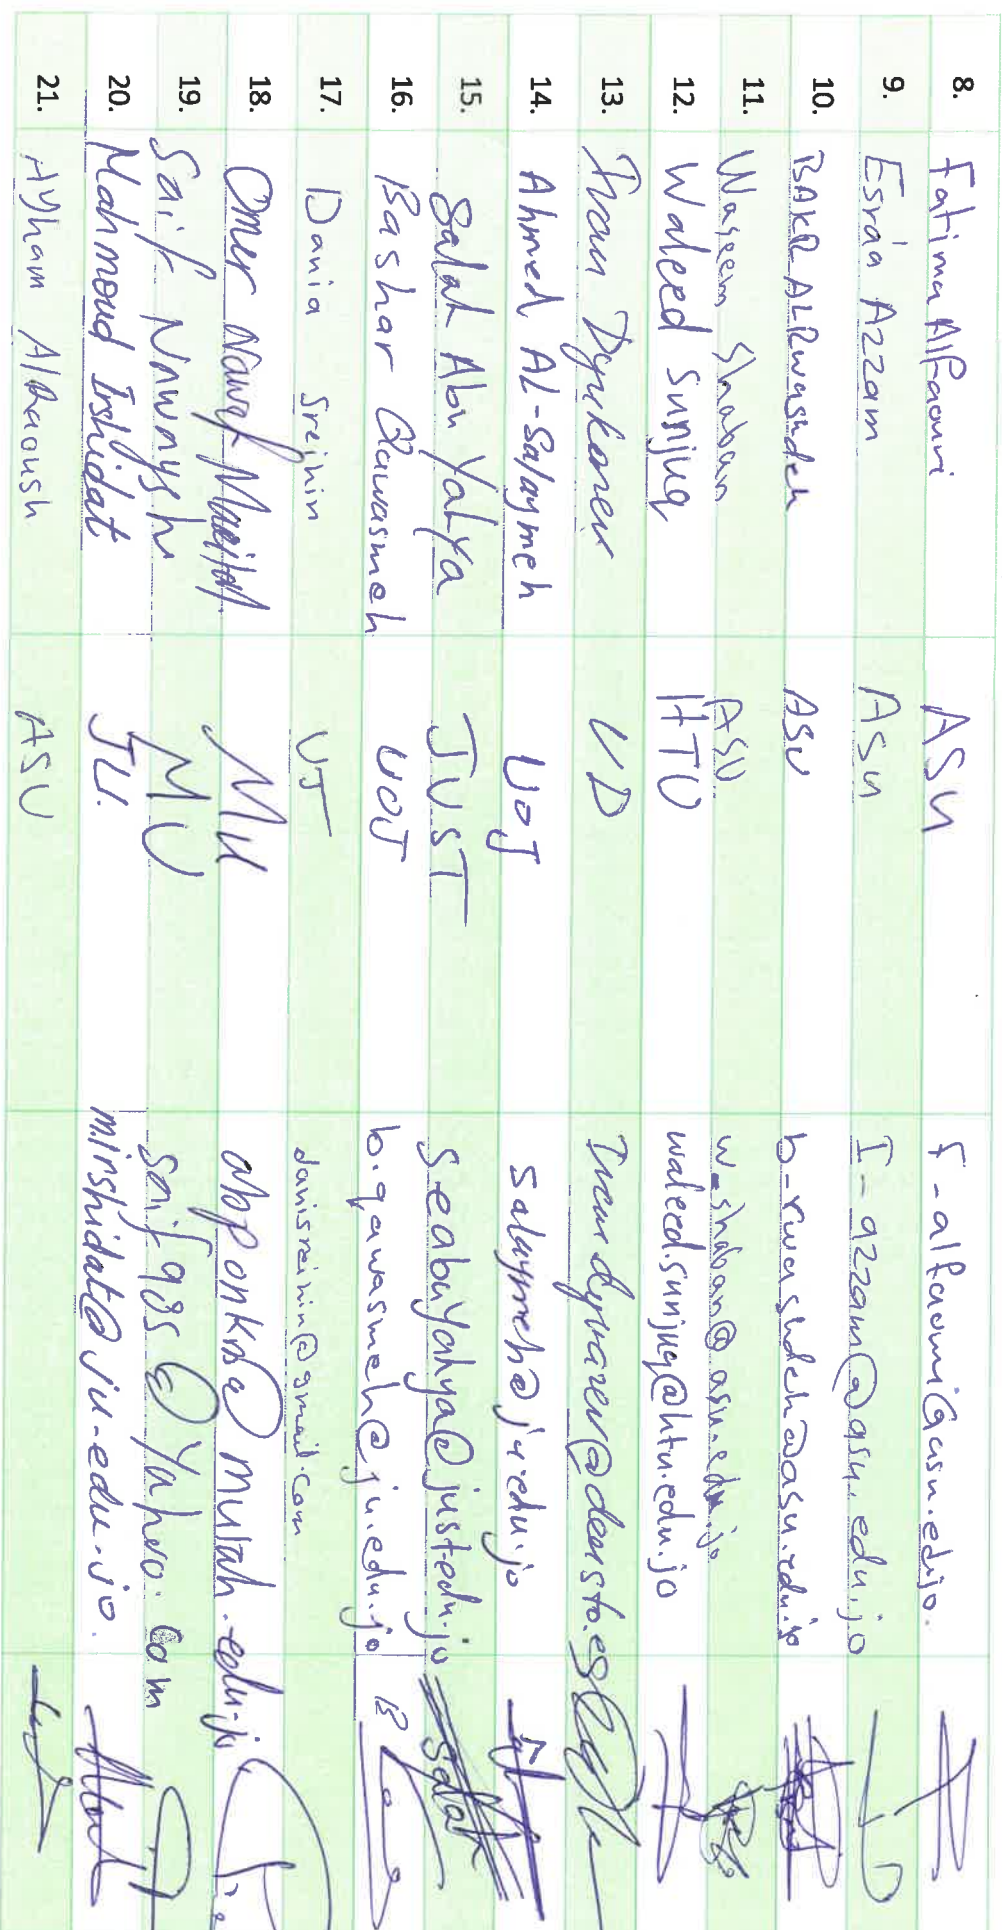 8. Fatima AlFaouri ASU f-alfaouri@asu.edu.jo.
9. Esra'a Azzam ASU I-azzam@asu.edu.jo
10. BAKR ALRwashdeh ASU b-rwashdeh@asu.edu.jo
11. Waseem Shaban ASU w-shaban@asu.edu.jo
12. Waleed Sunjuq HTU waleed.sunjuq@htu.edu.jo
13. UD
14. Ahmed AL-Salaymeh UOJ salaymeh@ju.edu.jo
15. Salah Abu Yahya JUST seabuyahya@just.edu.jo Salah
16. Bashar Qawasmeh UOJ b.qawasmeh@ju.edu.jo
17. Dania Sreihin UJ danisreihin@gmail.com
18. Omer Nawaf MU mutah.edu.jo
19. Saif Nawaysh MU Yahoo.com
20. Mahmoud Irshidat JU. mirshidat@ju.edu.jo.
21. Ayham Alkaoush ASU